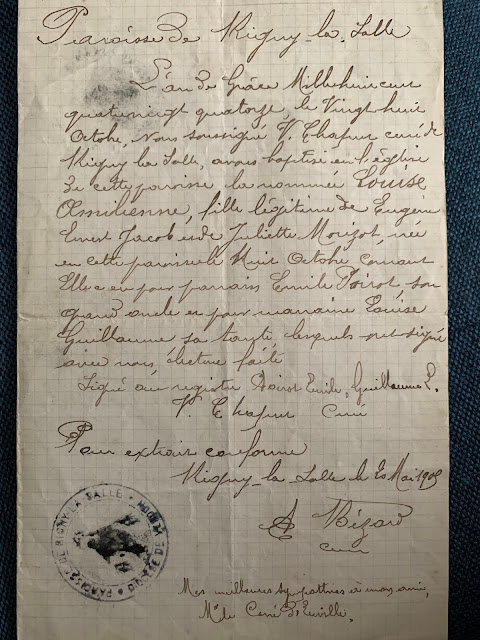 Paroisse de Rigny-la-Salle
L'an de Grâce Mil huit cent
quatrevingt quatorze, le Vingt huit
Octobre, Nous soussigné V. Chapur curé de
Rigny la Salle, avons baptisé en l'église
de cette paroisse la nommée Louise
Emilienne, fille légitime de Eugène
Ernest Jacob et de Juliette Morizot, née
en cette paroisse le Huit Octobre courant
Elle a eu pour parrain Emile Poirot, son
grand oncle et pour marraine Louise
Guillaume sa tante lesquels ont signé
avec nous, lecture faite
Signé au registre Poirot Emile, Guillaume L.
V. Chapur Curé
Pour extrait conforme
Rigny-la-Salle le 20 Mai 1905
A Bizard
curé
Mes meilleures sympathies à mon ami,
Mr le Curé
PAROISSE DE RIGNY-LA-SALLE * DIOCÈSE DE VERDUN *